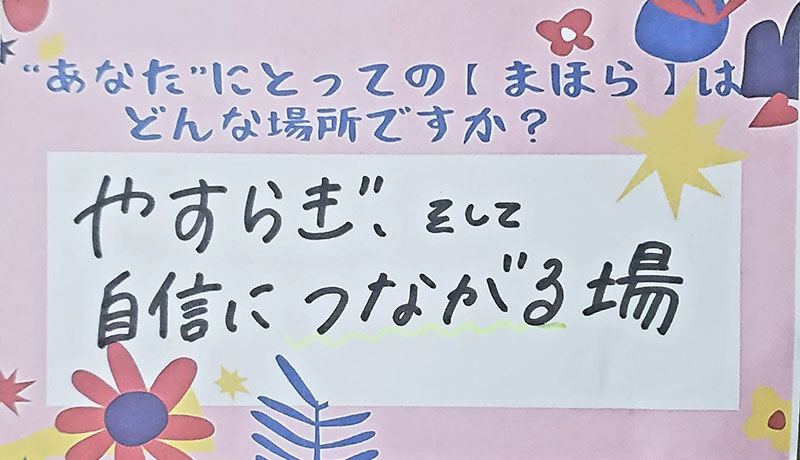 “あなた”にとっての【 まほら 】は
どんな場所ですか？
やすらぎ、そして
自信につながる場